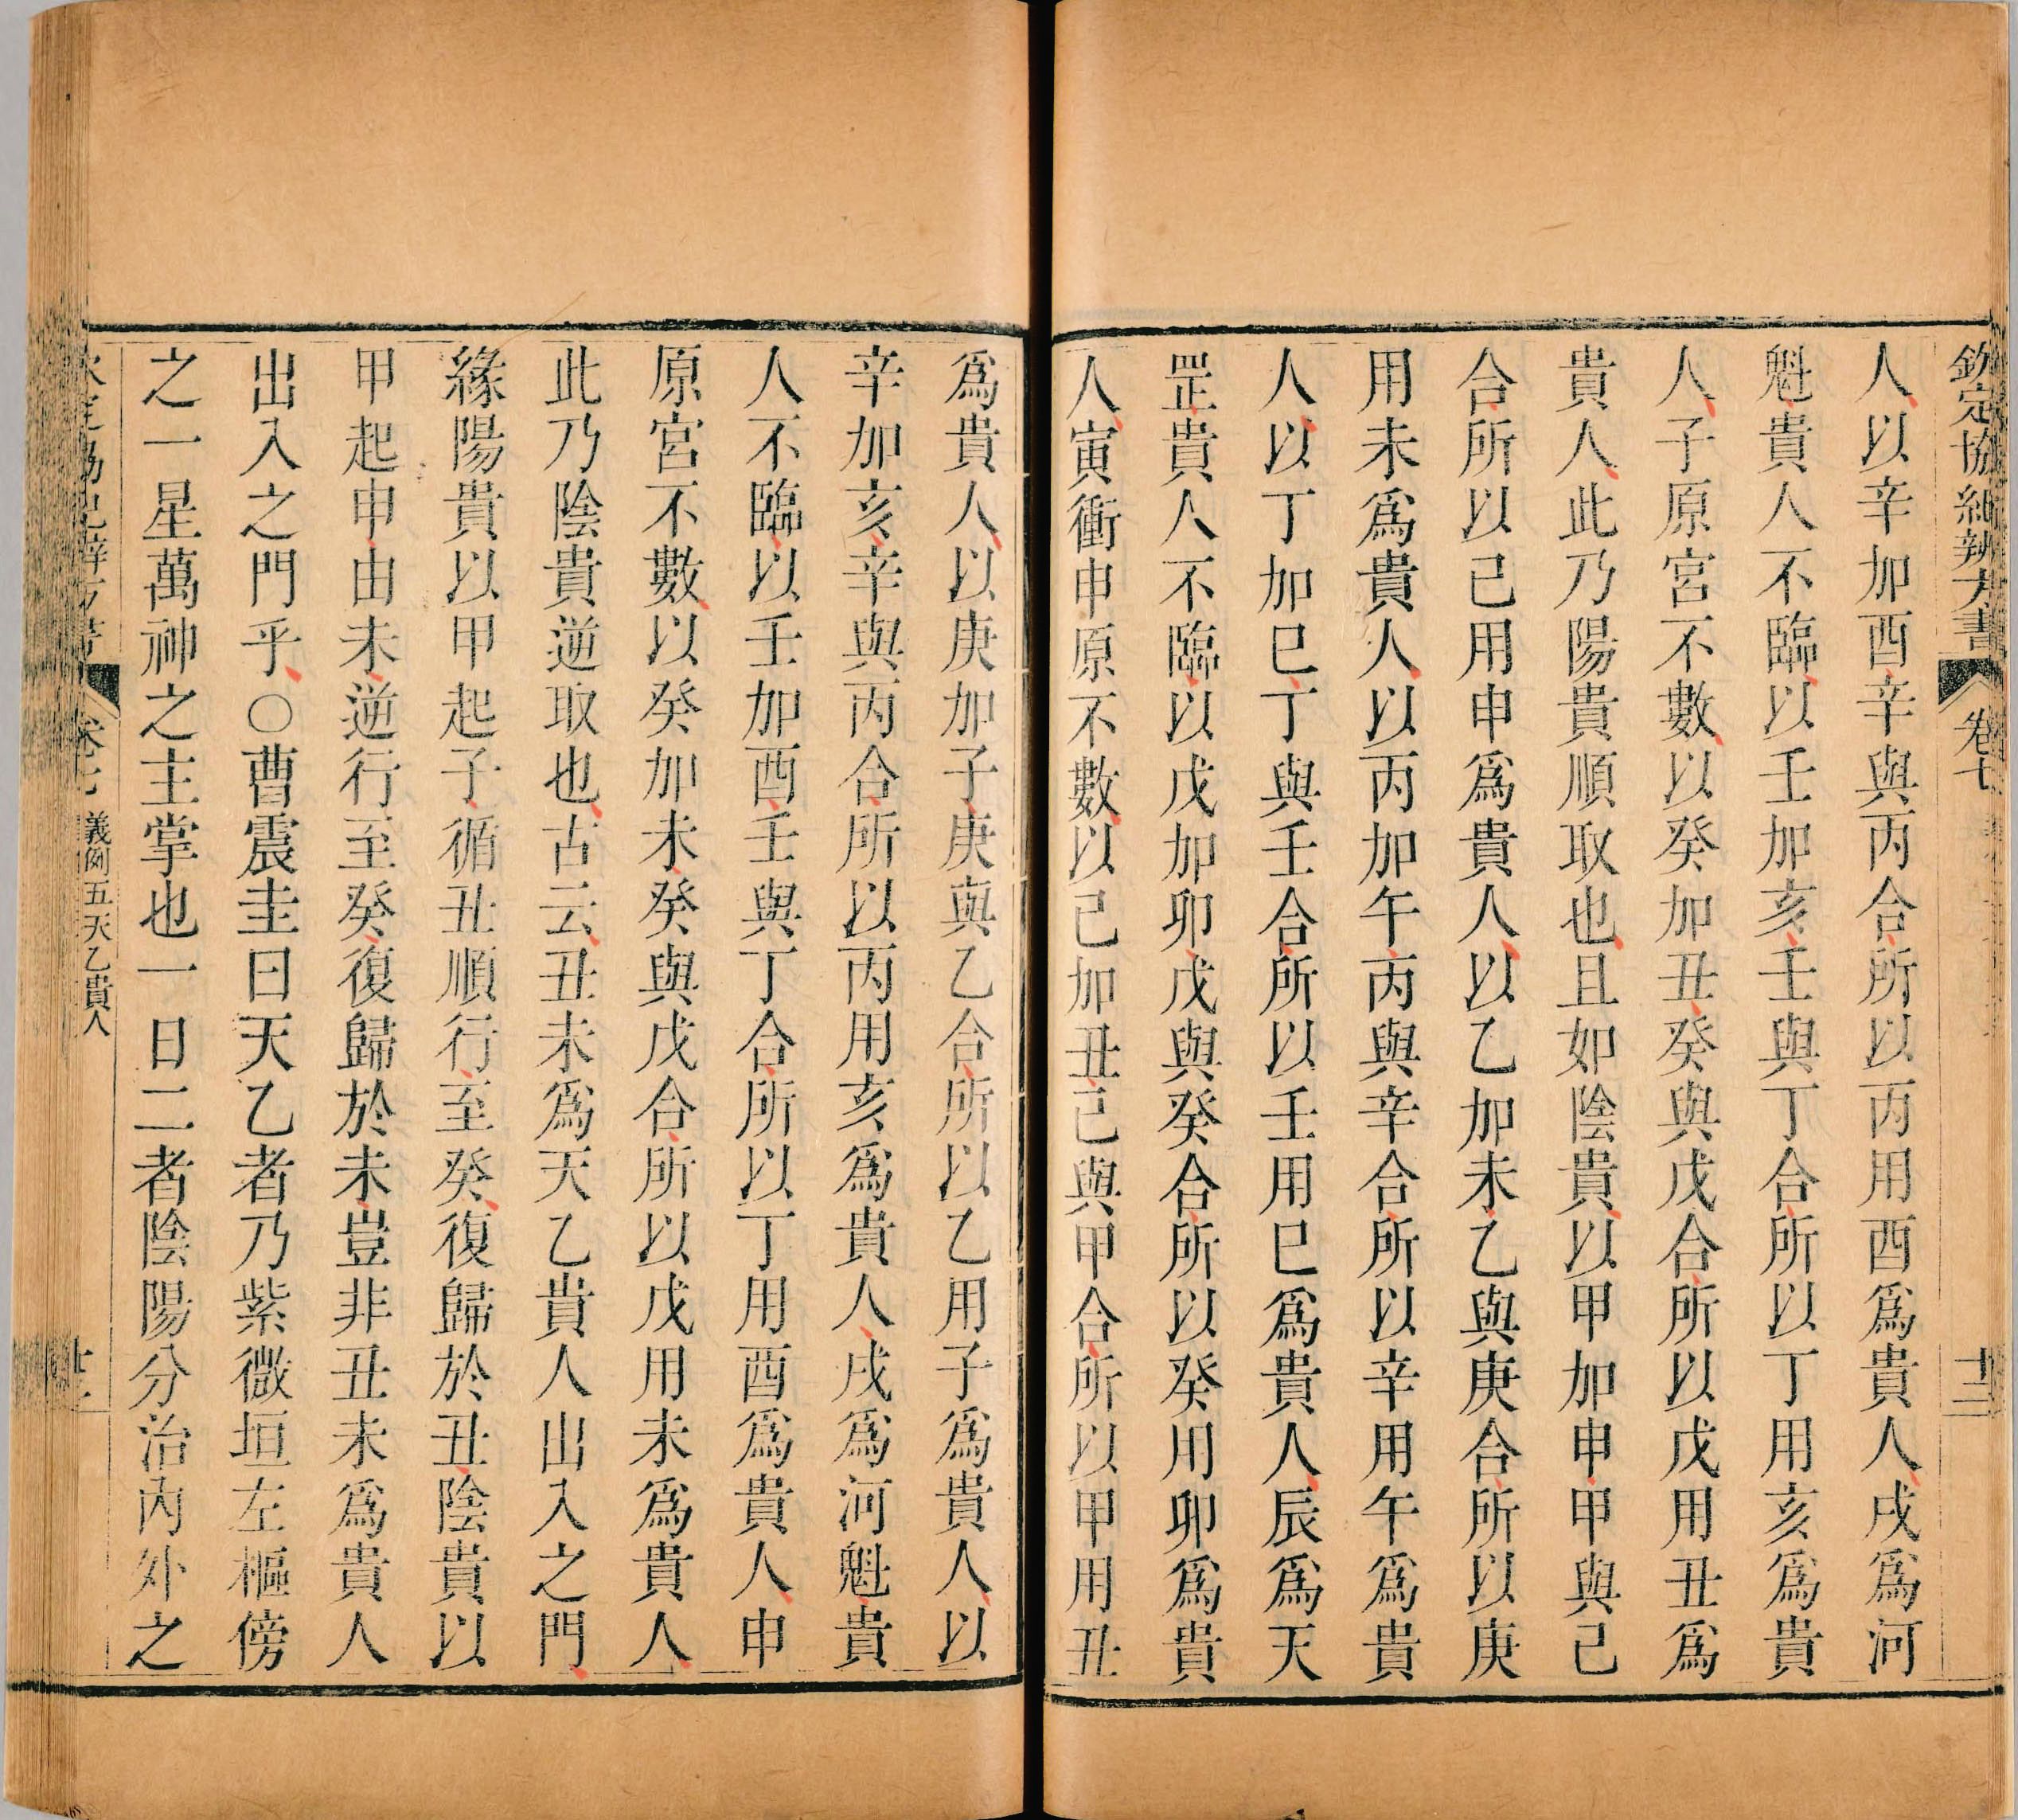 欽定協紀辨方書 卷七 十二
人以辛加酉辛與丙合所以丙用酉爲貴人戌爲河
魁貴人不臨以壬加亥壬與丁合所以丁用亥爲貴
人子原宮不數以癸加丑癸與戊合所以戊用丑爲
貴人此乃陽貴順取也且如陰貴以甲加申甲與己
合所以己用申爲貴人以乙加未乙與庚合所以庚
用未爲貴人以丙加午丙與辛合所以辛用午爲貴
人以丁加巳丁與壬合所以壬用巳爲貴人辰爲天
罡貴人不臨以戊加卯戊與癸合所以癸用卯爲貴
人寅衝申原不數以己加丑己與甲合所以甲用丑
爲貴人以庚加子庚與乙合所以乙用子爲貴人以
辛加亥辛與丙合所以丙用亥爲貴人戌爲河魁貴
人不臨以壬加酉壬與丁合所以丁用酉爲貴人申
原宮不數以癸加未癸與戊合所以戊用未爲貴人
此乃陰貴逆取也古云丑未爲天乙貴人出入之門
緣陽貴以甲起子循丑順行至癸復歸於丑陰貴以
甲起申由未逆行至癸復歸於未豈非丑未爲貴人
出入之門乎○曹震圭曰天乙者乃紫微垣左樞傍
之一星萬神之主掌也一日二者陰陽分治內外之
義例五天乙貴人